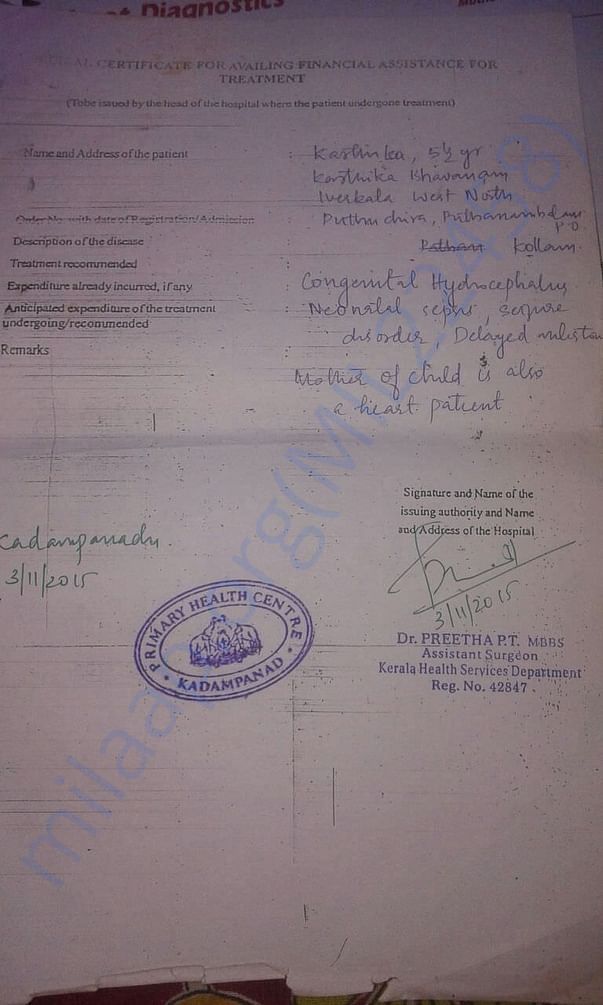 Diagnostics
CERTIFICATE FOR AVAILING FINANCIAL ASSISTANCE FOR
TREATMENT
(Tobe issued by the head of the hospital where the patient undergone treatment)
Name and Address of the patient : Karthika, 5½ yr
Karthika Bhavanam
Iverkala West North
Order No. with date of Registration/Admission : Puthuchira, Puthanambalam
P.O
Description of the disease : Kollam.
Treatment recommended :
Expenditure already incurred, if any : Congenital Hydrocephalus
Anticipated expenditure of the treatment : Neonatal sepsis, seizure
undergoing/recommended
disorder, Delayed mileston
Remarks
Mother of child is also
a heart patient
Signature and Name of the
issuing authority and Name
and Address of the Hospital
Kadampanadu.
3/11/2015
3/11/2015
PRIMARY HEALTH CENTRE
KADAMPANAD
Dr. PREETHA P.T. MBBS
Assistant Surgeon
Kerala Health Services Department
Reg. No. 42847